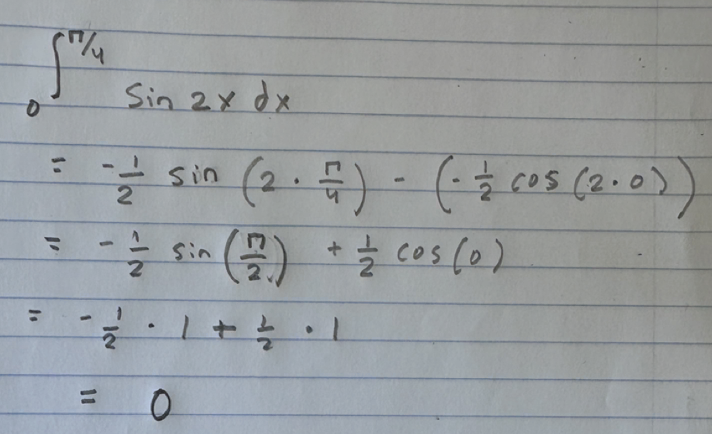 ∫₀^π/4 sin 2x dx
= -1/2 sin (2 · π/4) - (-1/2 cos (2 · 0))
= -1/2 sin (π/2) + 1/2 cos (0)
= -1/2 · 1 + 1/2 · 1
= 0